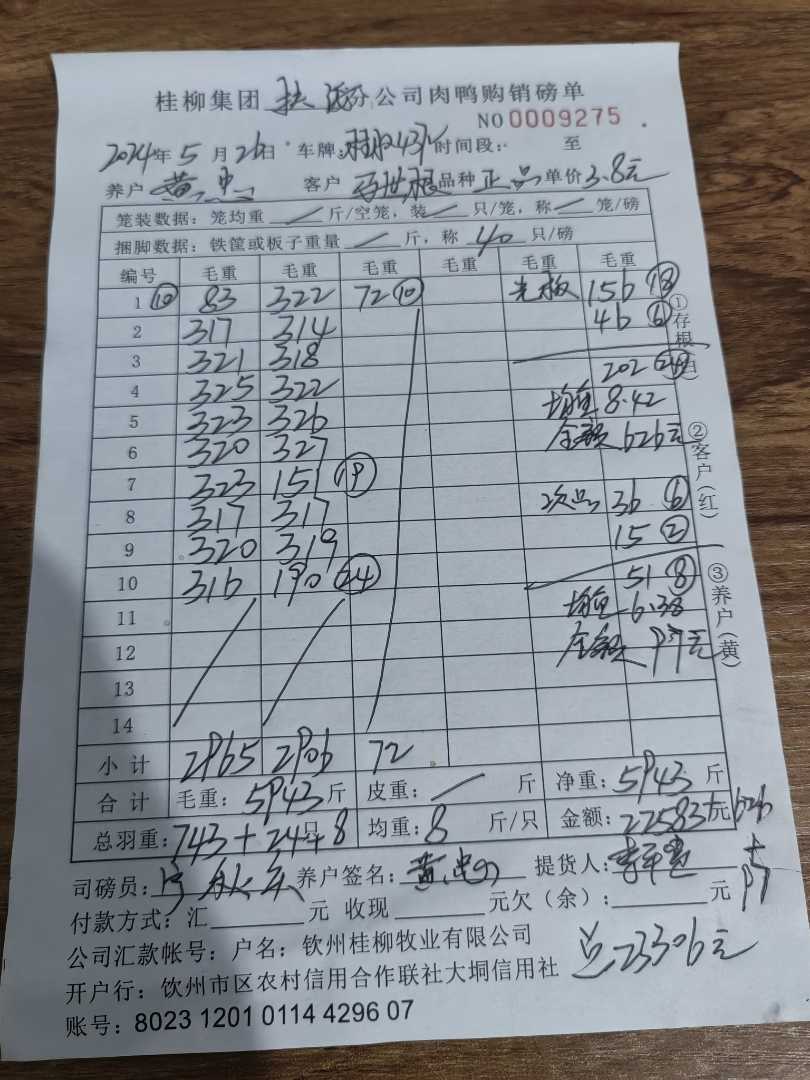 桂柳集团 扶 分公司肉鸭购销磅单
NO 0009275
2024年 5 月 26日 车牌: 时间段: 至
养户 黄 忠 客户 品种 正品 单价 3.8元
笼装数据: 笼均重 / 斤/空笼, 装 / 只/笼, 称 / 笼/磅
捆脚数据: 铁筐或板子重量 / 斤, 称 40 只/磅
编号 毛重 毛重 毛重 毛重 毛重 毛重
1 ⑩ 83 322 72 ⑩ 光板 156 ⑱
2 317 314 46 ⑥
3 321 318 202 ㉔
4 325 322 均重 8.42
5 323 326 金额 626元
6 320 327
7 323 151 ⑲ 次品 36 ⑥
8 317 317 15 ②
9 320 319 51 ⑧
10 316 190 ㉔ 均重 6.38
11
12 金额 97元
13
14
小计 2965 2906 72
合计 毛重: 5943 斤 皮重: / 斤 净重: 5943 斤
总羽重: 743+24只+8 均重: 8 斤/只 金额: 22583元+626
+97
司磅员: 养户签名: 黄忠 提货人: 李
付款方式: 汇 元 收现 元欠(余): 元
公司汇款帐号: 户名: 钦州桂柳牧业有限公司
总23306元
开户行: 钦州市区农村信用合作联社大垌信用社
账号: 8023 1201 0114 4296 07
①存根(白)
②客户(红)
③养户(黄)